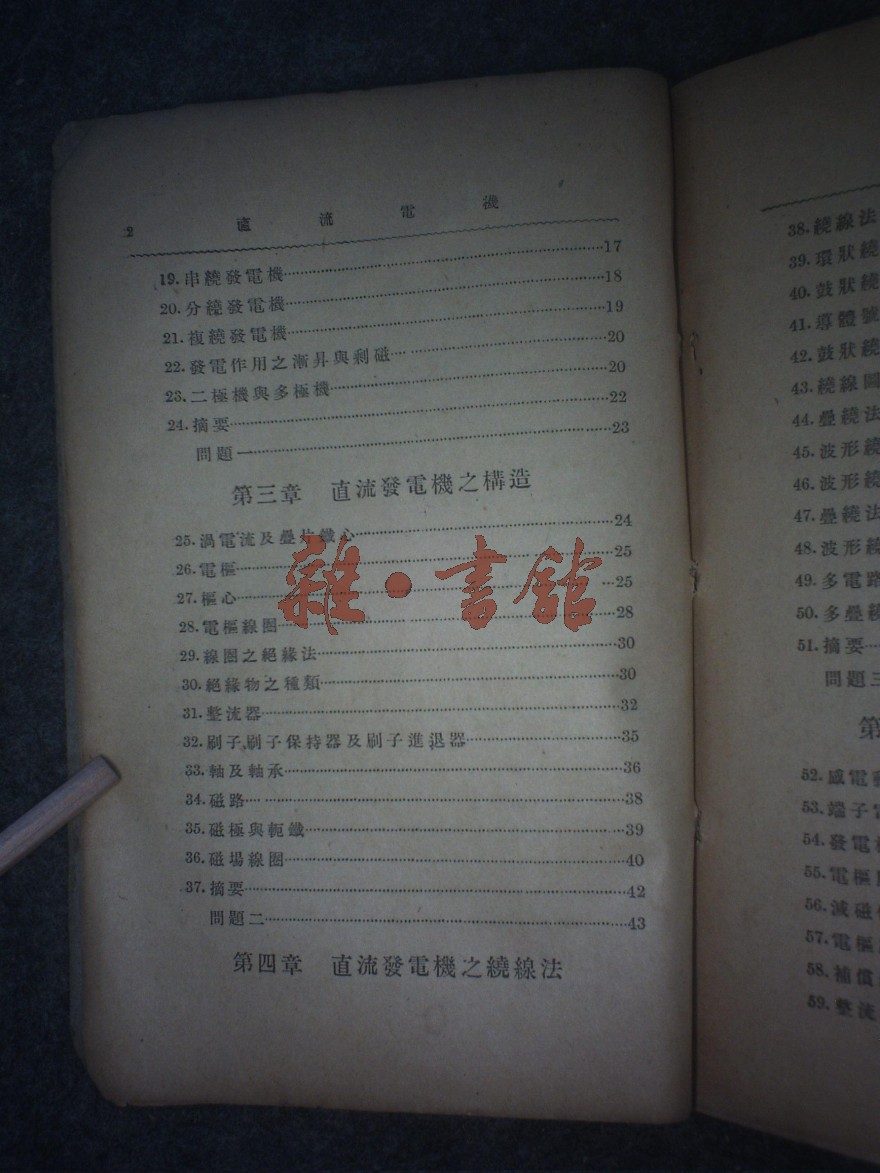 2 直流電機
19.串繞發電機 17
20.分繞發電機 18
21.複繞發電機 19
22.發電作用之漸昇與剩磁 20
23.二極機與多極機 20
24.摘要 22
問題一 23
第三章 直流發電機之構造
25.渦電流及疊片鐵心 24
26.電樞 25
27.樞心 25
28.電樞線圈 28
29.線圈之絕緣法 30
30.絕緣物之種類 30
31.整流器 32
32.刷子,刷子保持器及刷子進退器 35
33.軸及軸承 36
34.磁路 38
35.磁極與軛鐵 39
36.磁場線圈 40
37.摘要 42
問題二 43
第四章 直流發電機之繞線法
雜·書館
38.繞線法
39.環狀繞
40.鼓狀繞
41.導體號
42.鼓狀繞
43.繞線圖
44.疊繞法
45.波形繞
46.波形繞
47.疊繞法
48.波形繞
49.多電路
50.多疊繞
51.摘要
問題三
第
52.感電
53.端子電
54.發電
55.電樞
56.減磁
57.電樞
58.補償
59.整流